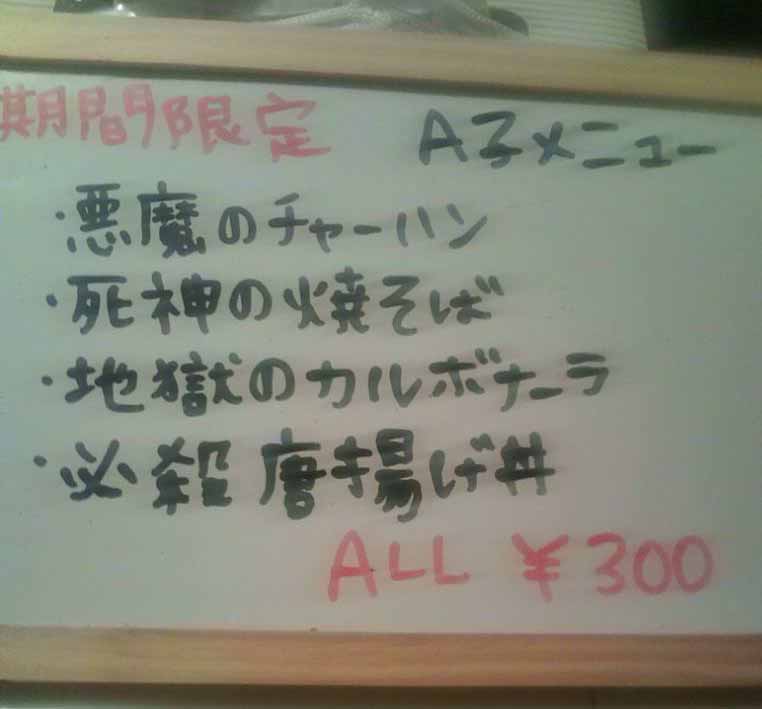 期間限定 A子メニュー
・悪魔のチャーハン
・死神の焼そば
・地獄のカルボナーラ
・必殺唐揚げ丼
ALL ¥300